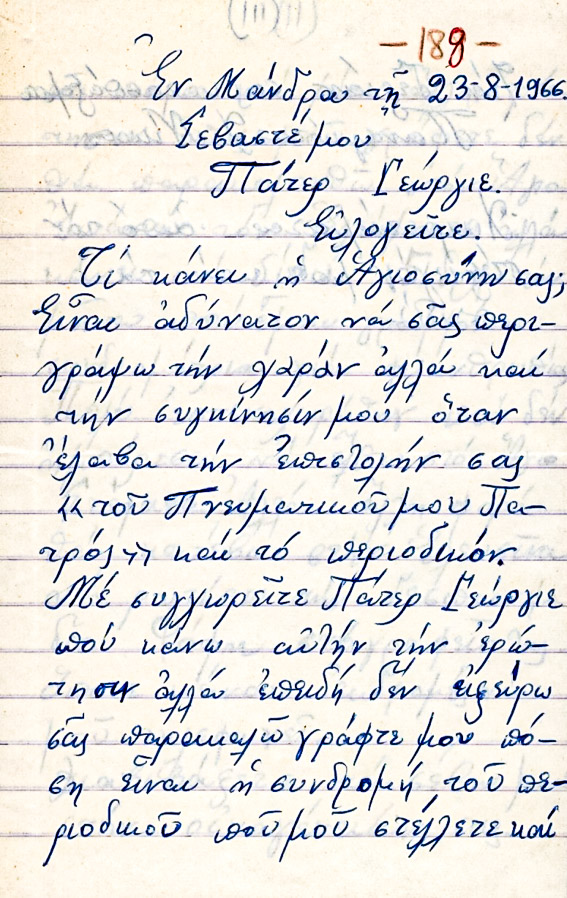 -189-
Ἐν Μάνδρᾳ τῇ 23-8-1966.
Σεβαστέ μου
Πάτερ Γεώργιε.
Εὐλογεῖτε.
Τί κάνει ἡ Ἁγιοσύνη σας;
Εἶναι ἀδύνατον νά σᾶς περι-
γράψω τήν χαράν ἀλλά καί
τήν συγκίνησίν μου ὅταν
ἔλαβα τήν ἐπιστολήν σας
«τοῦ Πνευματικοῦ μου Πα-
τρός» καί τό περιοδικόν.
Μέ συγχωρεῖτε Πάτερ Γεώργιε
πού κάνω αὐτήν τήν ἐρώ-
τησιν ἀλλά ἐπειδή δέν εἰξεύρω
σᾶς παρακαλῶ γράφτε μου πό-
ση εἶναι ἡ συνδρομή τοῦ πε-
ριοδικοῦ πού μοῦ στέλλετε καί